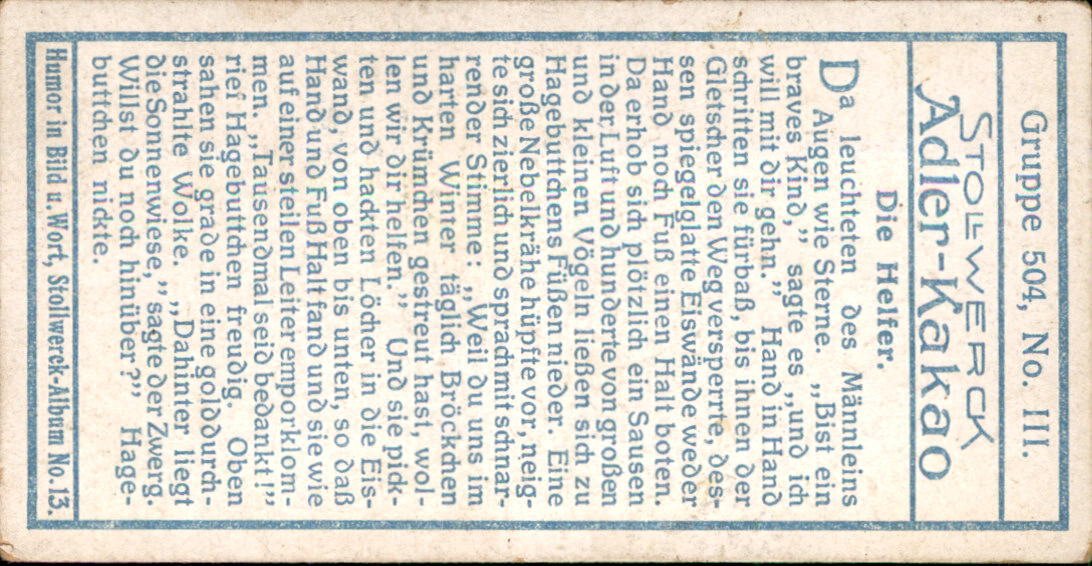 Gruppe 504, No. III.
STOLLWERCK
Adler-Kakao
Die Helfer.
Da leuchteten des Männleins
Augen wie Sterne. „Bist ein
braves Kind,” sagte es „und ich
will mit dir gehn.” Hand in Hand
schritten sie fürbaß, bis ihnen der
Gletscher den Weg versperrte, des-
sen spiegelglatte Eiswände weder
Hand noch Fuß einen Halt boten.
Da erhob sich plötzlich ein Sausen
in der Luft und hunderte von großen
und kleinen Vögeln ließen sich zu
Hagebuttchens Füßen nieder. Eine
große Nebelkrähe hüpfte vor, neig-
te sich zierlich und sprach mit schnar-
render Stimme: „Weil du uns im
harten Winter täglich Bröckchen
und Krümchen gestreut hast, wol-
len wir dir helfen.” Und sie pick-
ten und hackten Löcher in die Eis-
wand, von oben bis unten, so daß
Hand und Fuß Halt fand und sie wie
auf einer steilen Leiter emporklom-
men. „Tausendmal seid bedankt!”
rief Hagebuttchen freudig. Oben
sahen sie grade in eine golddurch-
strahlte Wolke. „Dahinter liegt
die Sonnenwiese,” sagte der Zwerg.
Willst du noch hinüber?” Hage-
buttchen nickte.
Humor in Bild u. Wort, Stollwerck-Album No. 13.